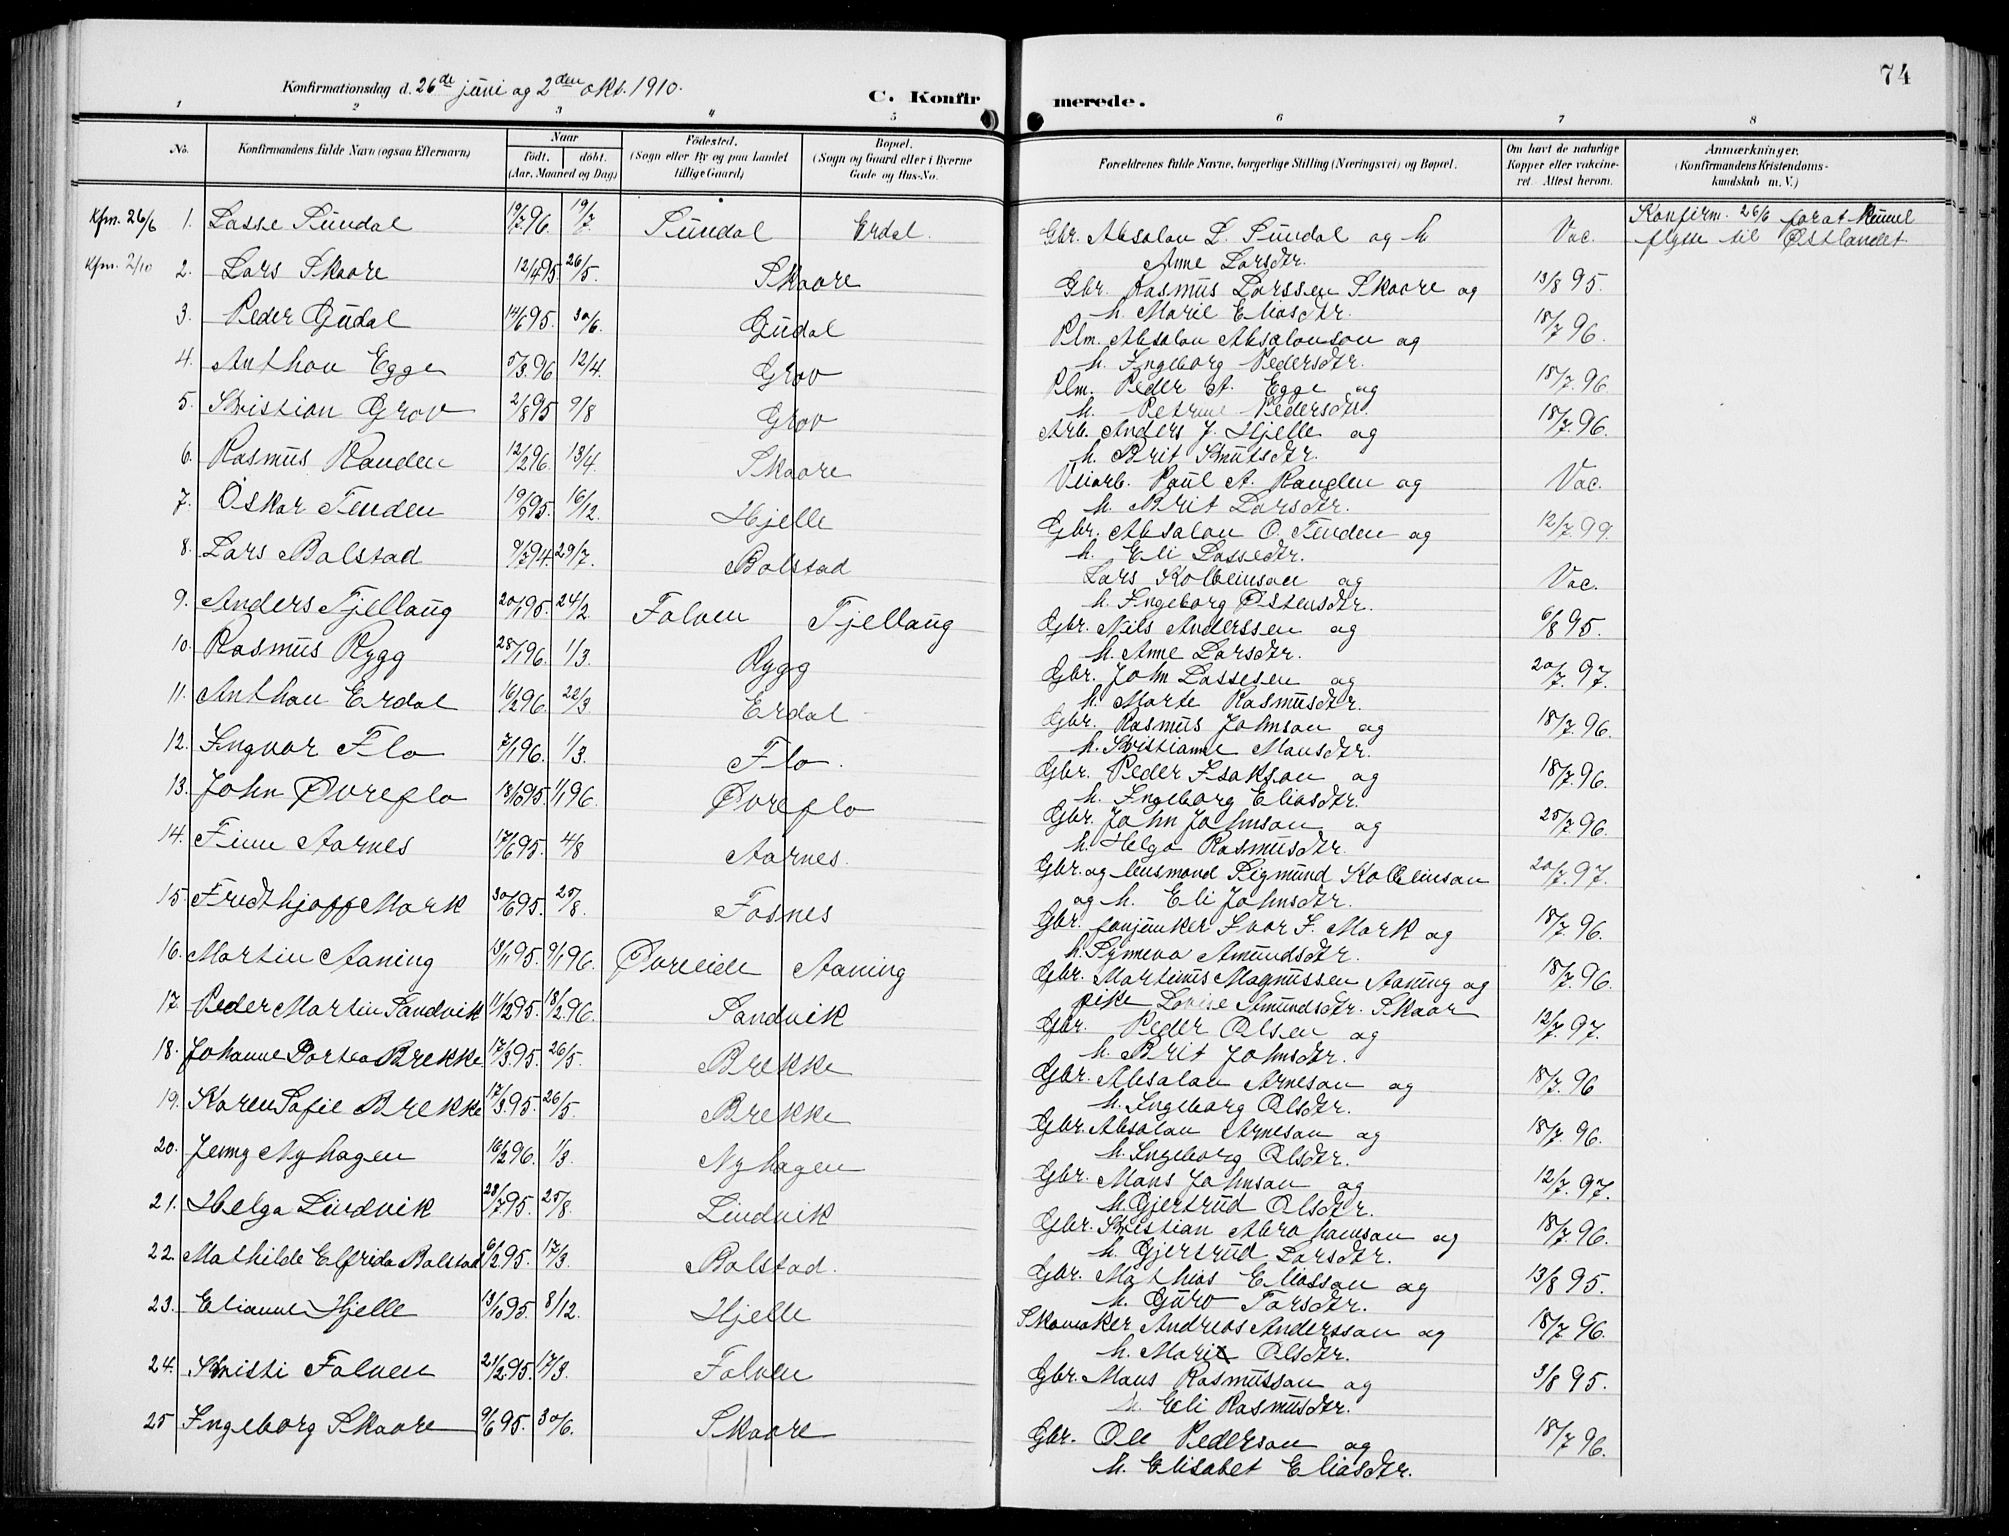 74
Konfirmationsdag d. 26de juni og 2den okt. 1910.
C. Konfirmerede.
1 2 3 4 5 6 7 8
No. Konfirmandens fulde Navn (ogsaa Efternavn) Naar født. døbt. (Aar, Maaned og Dag) Födested. (Sogn eller By og paa Landet tillige Gaard) Bopæl. (Sogn og Gaard eller i Byerne Gade og Hus-No. Forældrenes fulde Navne, borgerlige Stilling (Næringsvei) og Bopæl. Om havt de naturlige Kopper eller vakcineret. Attest herom. Anmærkninger. (Konfirmandens Kristendomskundskab m. V.)
Kfm. 26/6 1. Lasse Sundal 19/7 96. 19/7 Sundal Erdal. Gbr. Absalon L. Sundal og h. Vac. Konfirm. 26/6 forat kunne
Anne Larsdtr. flytte til Østlandet
Kfm. 2/10 2. Lars Skaare 12/4 95 26/5. Skaare Gbr. Rasmus Larssen Skaare og 13/8 95.
h. Marie Eliasdtr.
3. Peder Gudal 14/6 95. 30/6. Gudal Plm. Absalon Absalonson og 18/7 96.
h. Ingeborg Pedersdtr.
4. Anthon Egge 5/3 96 12/4. Grov Plm. Peder A. Egge og 18/7 96
h. Petrine Pedersdtr.
5. Kristian Grov 2/8 95 9/8 Grov Arb. Anders J. Hjelle og 18/7 96.
h. Brit Knutsdtr.
6. Rasmus Randen 12/2 96. 13/4 Skaare Veiarb. Paul A. Randen og Vac.
h. Brit Larsdtr.
7. Oskar Tenden 19/9 95. 16/12. Hjelle Gbr. Absalon O. Tenden og 12/7 99.
h. Eli Lassedtr.
8. Lars Bolstad 9/7 94. 29/7. Bolstad Lars Kolbeinson og Vac.
h. Ingeborg Østensdtr.
9. Anders Tjellaug 20/1 95. 24/2. Folven Tjellaug Gbr. Nils Anderssen og 6/8 95.
h. Anne Larsdtr.
10. Rasmus Rygg 28/1 96. 1/3. Rygg Gbr. John Lassesen og 20/7 97.
h. Marte Rasmusdtr.
11. Anthon Erdal 16/2 96. 22/3 Erdal Gbr. Rasmus Johnson og 18/7 96.
h. Kristianne Monsdtr.
12. Ingvar Flo 7/1 96. 1/3. Flo. Gbr. Peder Isakson og 18/7 96.
h. Ingeborg Eliasdtr.
13. John Øvreflo 13/10 95. 1/1 96. Øvreflo Gbr. John Johnson og 25/7 96.
h. Helga Rasmusdtr.
14. Finn Aarnes 17/6 95. 4/8 Aarnes. Gbr. og lensmand Sigmund Kolbeinson 20/7 97.
og h. Eli Johnsdtr.
15. Fredthjoff Mork 30/6 95. 25/8. Fosnes Gbr. fanjunker Ivar I. Mork og 18/7 96.
h. Synneva Amundsdtr.
16. Martin Aaning 13/11 95. 9/1 96. Øvreeide Aaning Gbr. Martinus Magnussen Aaning og 18/7 96.
pike Lovise Amundsdtr. Skaar
17. Peder Martin Sandvik 11/12 95. 18/2 96. Sandvik Gbr. Peder Olsen og 12/7 97.
h. Brit Johnsdtr.
18. Johanne Dortea Brekke 17/3 95. 26/5. Brekke Gbr. Absalon Arneson og 18/7 96
h. Ingeborg Olsdtr.
19. Karen Sofie Brekke 17/3 95. 26/5. Brekke Gbr. Absalon Arneson og 18/7 96.
h. Ingeborg Olsdtr.
20. Jenny Nyhagen 16/2 96. 1/3. Nyhagen Gbr. Mons Johnson og 12/7 97.
h. Gjertrud Olsdtr.
21. Helga Lindvik 28/7 95. 25/8. Lindvik Gbr. Kristian Abrahamson og 18/7 96.
h. Gjertrud Larsdtr.
22. Mathilde Elfrida Bolstad 6/2 95. 17/3. Bolstad. Gbr. Mathias Eliasson og 13/8 95.
h. Guro Torsdtr.
23. Elianne Hjelle 13/10 95. 8/12. Hjelle Skomaker Andreas Andersson og 18/7 96.
h. Marit Olsdtr.
24. Kristi Folven 21/2 95. 17/3. Folven Gbr. Mons Rasmusson og 3/8 95.
h. Eli Rasmusdtr.
25 Ingeborg Skaare 9/6 95. 30/6. Skaare Gbr. Ole Pederson og 18/7 96.
h. Elisabet Eliasdtr.